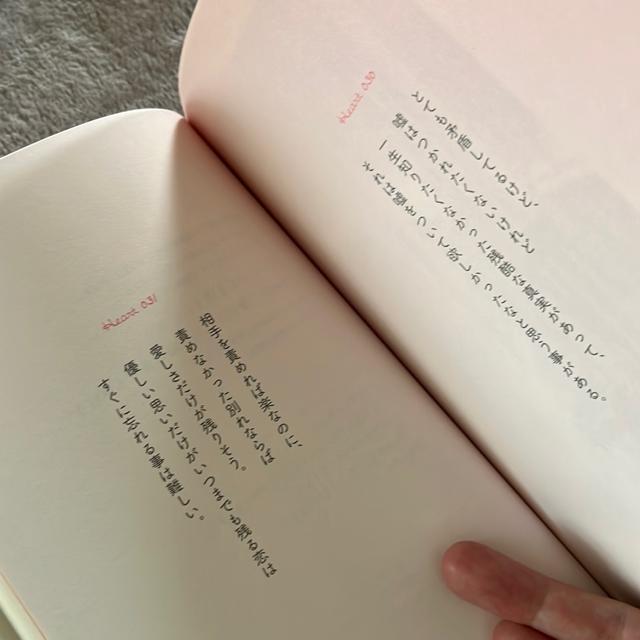 Heart 030
とても矛盾してるけど、
嘘はつかれたくないけれど
一生知りたくなかった残酷な真実があって、
それは嘘をついて欲しかったなと思う事がある。
Heart 031
相手を責めれば楽なのに、
責めなかった別れならば
愛しさだけが残りそう。
優しい思いだけがいつまでも残る恋は
すぐに忘れる事は難しい。